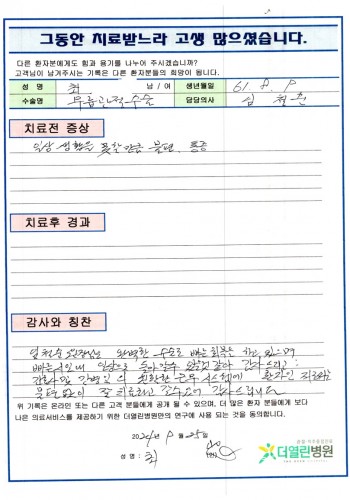 그동안 치료받느라 고생 많으셨습니다.
다른 환자분에게도 힘과 용기를 나누어 주시겠습니까?
고객님이 남겨주시는 기록은 다른 환자분들의 희망이 됩니다.
성 명 최 남 / 여 생년월일 61. 8. 9
수술명 무릎관절수술 담당의사 심
치료전 증상
일상 생활을 못할만큼 불편, 통증
치료후 경과
감사와 칭찬
원장님의 완벽한 수술로 빠른 회복을 하고 있으며
빠른 시일내 일상으로 돌아갈수 있을것 같아 감사드리고
간호사님 간병인의 근무 시스템에 환자인 저로써는
불편없이 잘 치료하고 감사드립니다
위 기록은 온라인 또는 다른 고객 분들에게 공개 될 수 있으며, 더 많은 환자 분들에게 보다
나은 의료서비스를 제공하기 위한 더열린병원만의 연구에 사용 되는 것을 동의합니다.
2024년 9월 25일
성 명 : 최 (인)
관절·척추중점진료
더열린병원